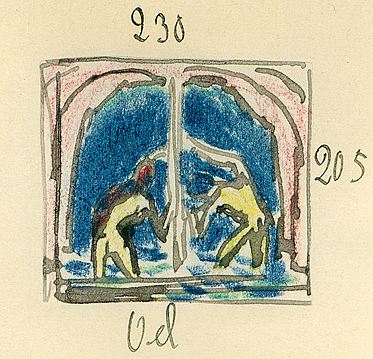 230
205
Oel